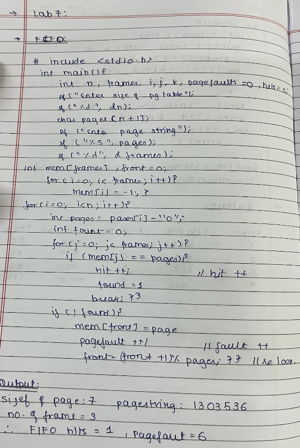 → lab 7:
→ FIFO
# include <stdio.h>
int main(){
int n, frames, i, j, k, pagefault=0, hit=0;
pf("Enter size of pg table");
sf("%d", &n);
char pages [n+1];
pf ("enter page string");
sf ("%s", pages);
sf ("%d", & frames);
int mem[frames], front=0;
for(i=0; i< frames; i++){
mem[i] = -1; }
for(i=0; i<n; i++){
int pages = pages[i]-"0";
int found=0;
for(j=0; j< frames; j++){
if (mem[j] == pages){
hit++; // hit ++
found=1
break; }}
if (! found){
mem[front] = page
pagefault ++; // fault ++
front=(front+1)% pages; }}
Output:
size of page: 7 pagestring: 1303536
no. of frame = 3
∴ FIFO hits = 1, pagefault=6